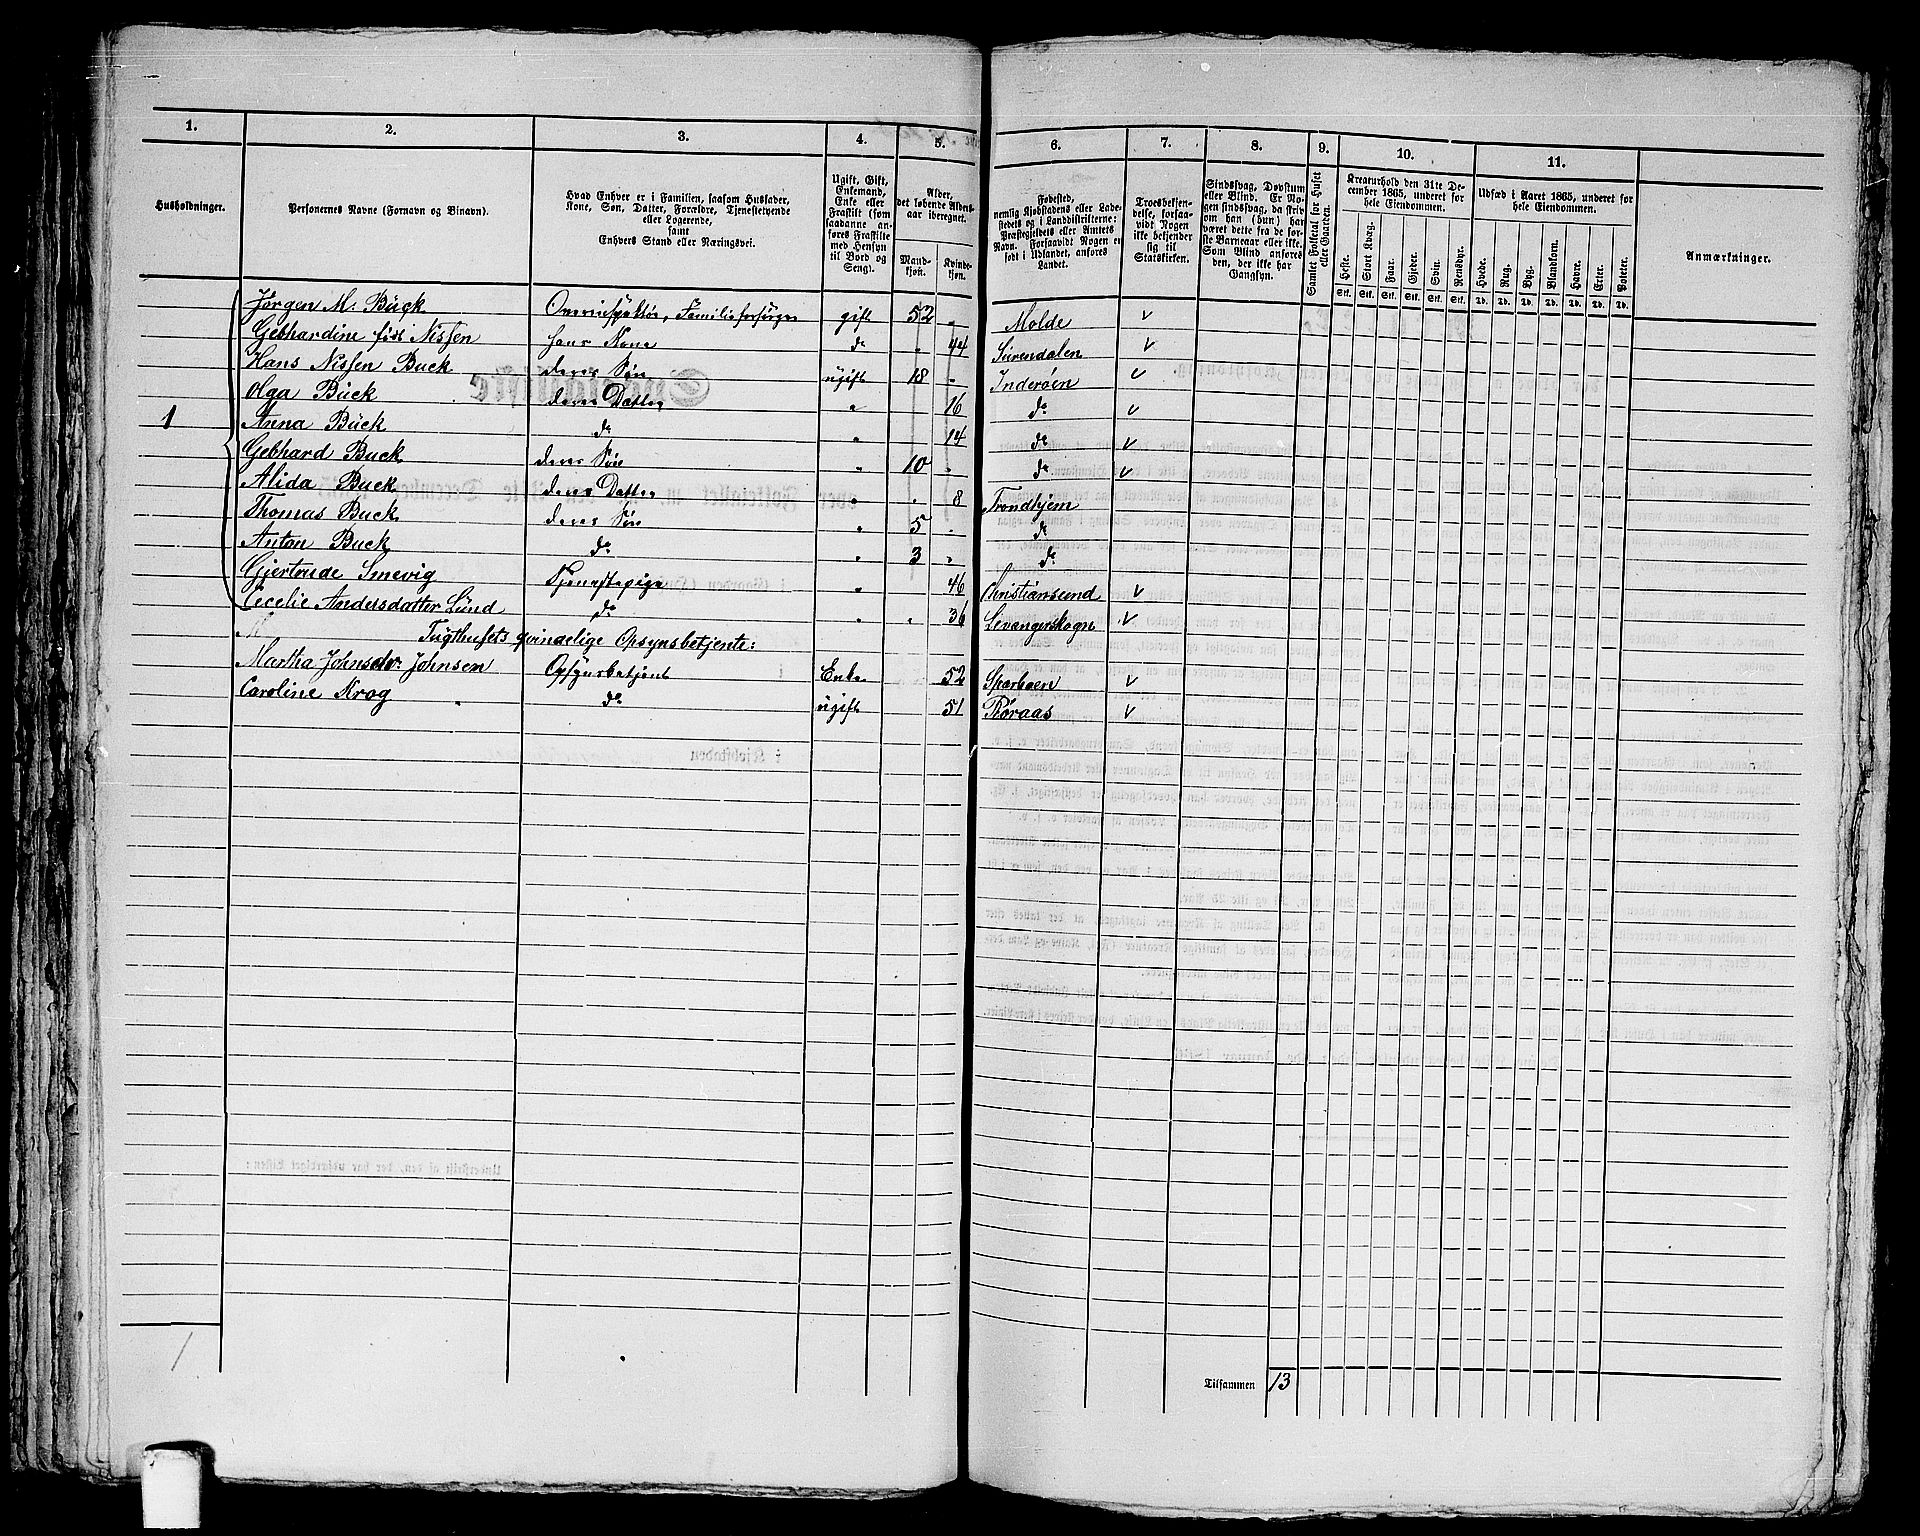 1. 2. 3. 4. 5. 6. 7. 8. 9. 10. 11.
Husholdninger.
Personernes Navne (Fornavn og Binavn).
Hvad Enhver er i Familien, saasom Husfader,
Kone, Søn, Datter, Forældre, Tjenestetyende
eller Logerende,
samt
Enhvers Stand eller Næringsvei.
Ugift, Gift,
Enkemand,
Enke eller
Fraskilt (som
saadanne an-
føres Fraskilte
med Hensyn
til Bord og
Seng).
Alder,
det løbende Alders-
aar iberegnet.
Mand-
kjøn.
Kvinde-
kjøn.
Fødested,
nemlig Kjøbstadens eller Lade-
stedets og i Landdistrikterne:
Præstegjeldets eller Amtets
Navn. Forsaavidt Nogen er
født i Udlandet, anføres
Landet.
Troesbekjen-
delse, forsaa-
vidt Nogen
ikke bekjender
sig til
Statskirken.
Sindssvag, Døvstum
eller Blind. Er No-
gen sindssvag, da skriv
om han (hun) har
været dette fra de før-
ste Barneaar eller ikke.
Som Blind anføres
den, der ikke har
Gangsyn.
Samlet Folketal for Huset
eller Gaarden.
Kreaturhold den 31te De-
cember 1865, underet for
hele Eiendommen.
Heste. Stort Kvæg. Faar. Gjeder. Svin. Rensdyr.
Stk. Stk. Stk. Stk. Stk. Stk.
Udsæd i Aaret 1865, underet for
hele Eiendommen.
Hvede. Rug. Byg. Blandkorn. Havre. Erter. Poteter.
Td. Td. Td. Td. Td. Td. Td.
Anmærkninger.
Jørgen M. Buck gift 52 " Molde v
Gebhardine født Nissen hans Kone do " 44 Surendalen v
Hans Nissen Buck deres Søn ugift 18 " Inderøen v
Olga Buck deres Datter " 16 do v
1 Anna Buck do " 14 do v
Gebhard Buck deres Søn " 10 " do v
Alida Buck deres Datter " " 8 Trondhjem
Thomas Buck deres Søn " 5 " do
Anton Buck do " 3 " do
Gjertrude Smevig Tjenestepige " 46 Christiansund v
Cecelie Andersdatter Lund do " " 36 Levangerskogn v
Tugthusets qvindelige Opsynsbetjente:
Martha Johnsdr. Johnsen Opsynsbetjent Enke 52 Sparboen v
Caroline Krog do ugift 51 Røraas v
1
Tilsammen 13